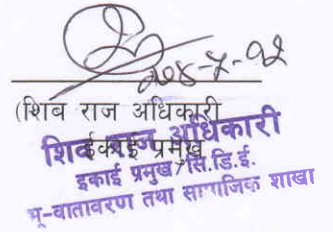 (शिव राज अधिकारी
ईकाई प्रमुख
शिव राज अधिकारी
इकाई प्रमुख/सि.डि.ई.
भू-वातावरण तथा सामाजिक शाखा